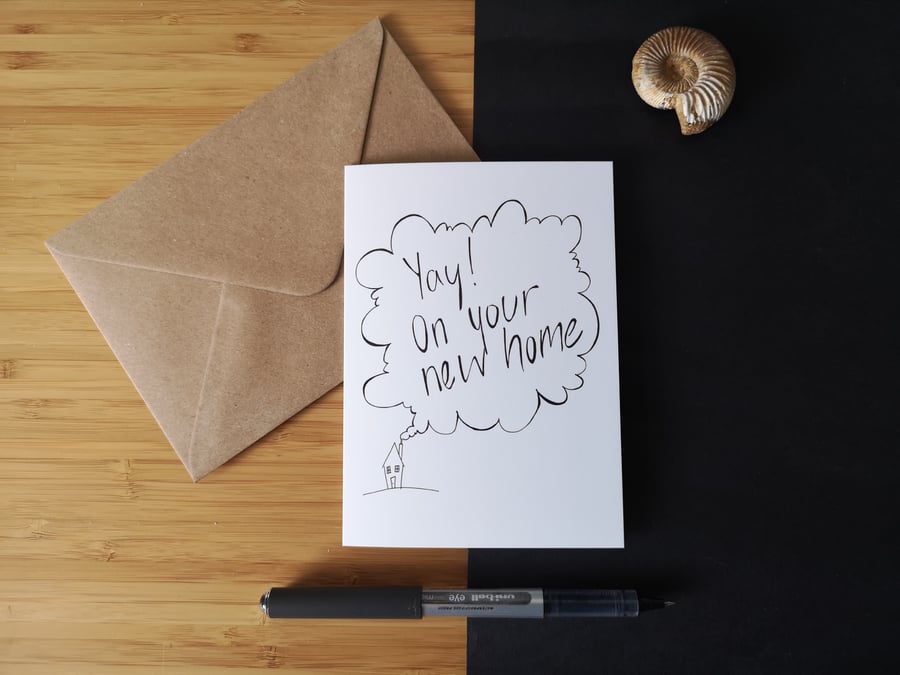 Yay!
On your
new home
uni-ball eye